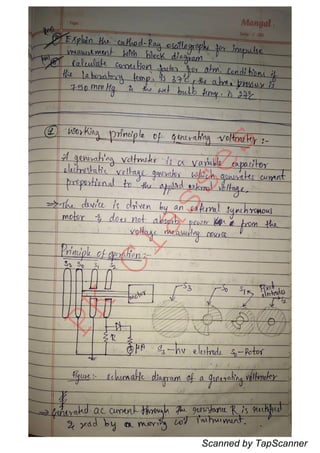 Mangal
Explain the cathod-Ray oscillographs for impulse
measurement with block diagram
calculate correction factor for atm. conditions if
the laboratory temp. is 37°c, the atm. pressure is
750 mmHg & the wet bulb temp. is 27°c
① working principle of generating voltmeter :-
A generating voltmeter is a variable capacitor
electrostatic voltage generator which generates current
proportional to the applied external voltage.
⇒ The device is driven by an external synchronous
motor & does not absorb power from the
voltage measuring source
Principle of operation :-
S3 S0 S1 S2
motor
S3 S0 S1 Fixed
electrodes
S2
R
μA
S3 - hv electrode S0 - Rotor
Figure :- schematic diagram of a generating voltmeter
⇒ Generated ac current through the resistance R is rectified
& read by a moving coil instrument.
Scanned by TapScanner